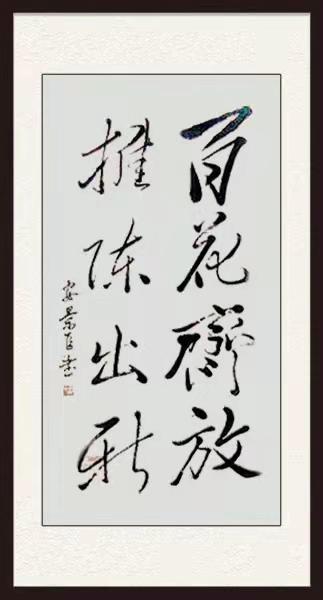 百花齊放
推陳出新